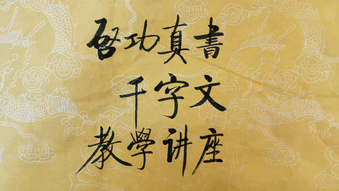 啓功真書
千字文
教學讲座